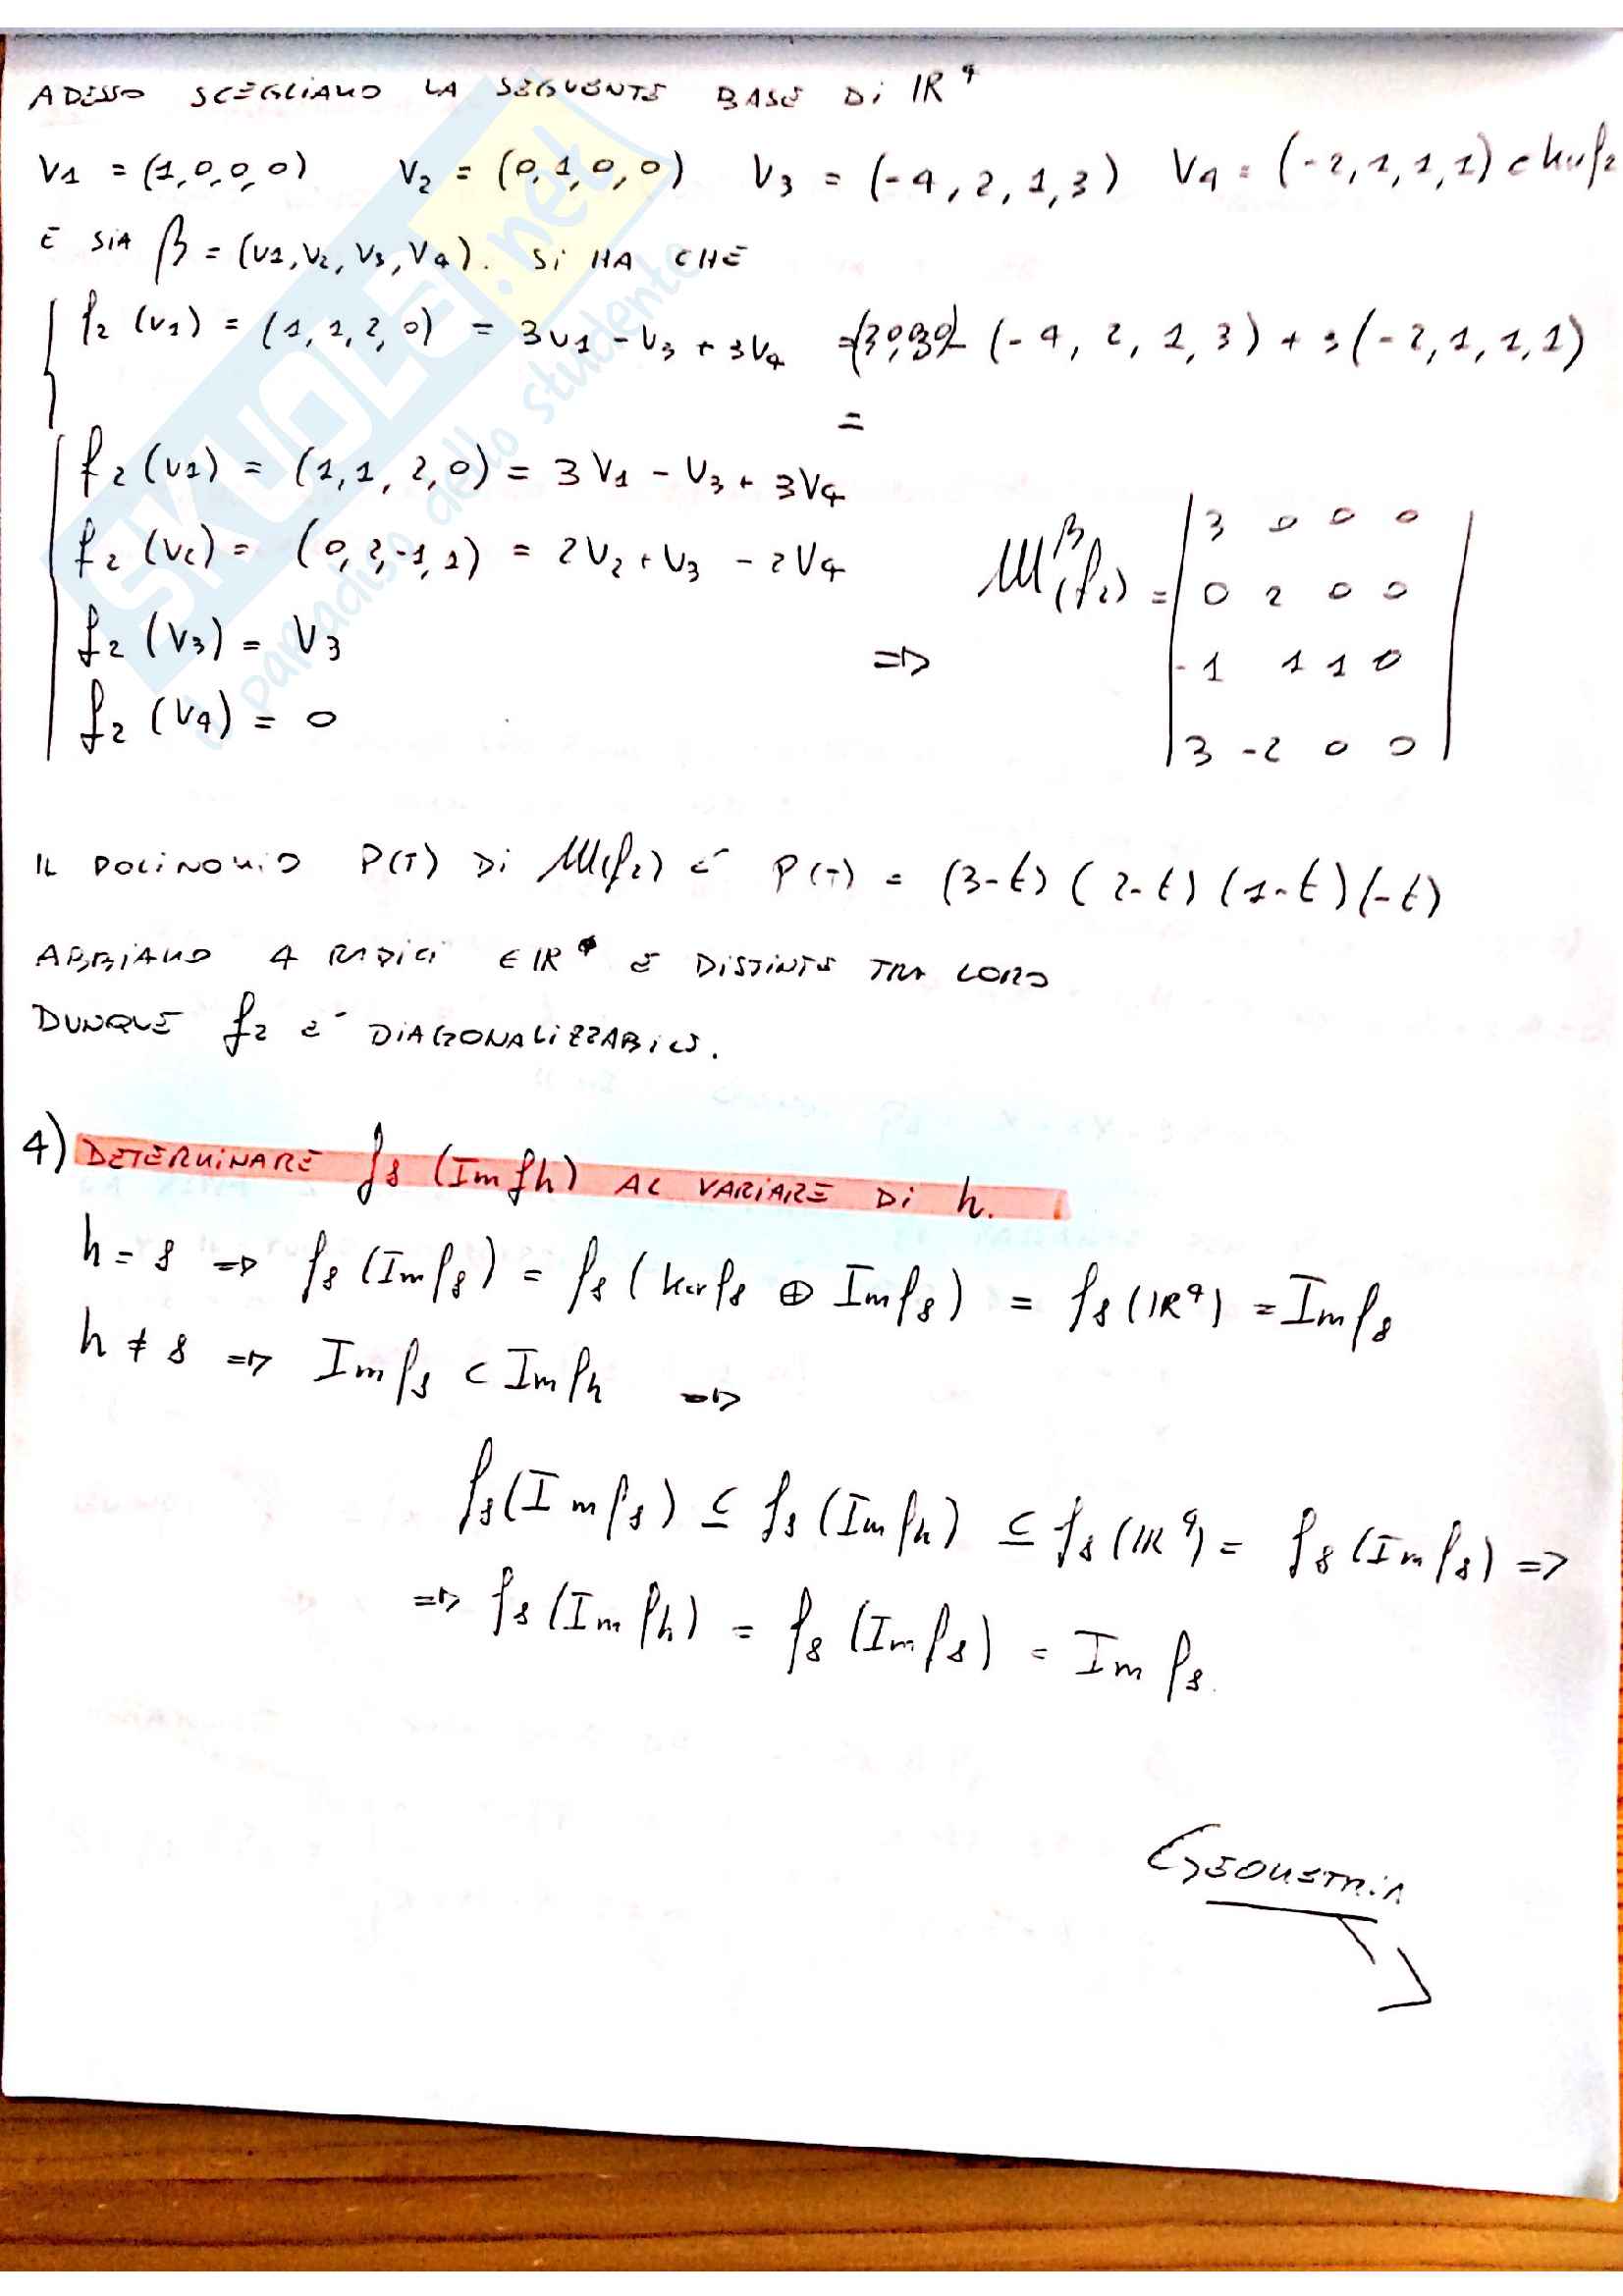 ADESSO SCEGLIAMO LA SEGUENTE BASE DI IR⁴
V1 = (1,0,0,0) V2 = (0,1,0,0) V3 = (-4,2,1,3) V4 = (-2,1,1,1) ∈ kerf2
E SIA β = (V1,V2,V3,V4). SI HA CHE
f2 (V1) = (1,1,2,0) = 3V1 - V3 + 3V4 (-4,2,1,3) + 3(-2,1,1,1)
=
f2 (V1) = (1,1,2,0) = 3V1 - V3 + 3V4
f2 (V2) = (0,2,-1,1) = 2V2 + V3 - 2V4
f2 (V3) = V3
f2 (V4) = 0
=> M^β(f2) =
3 0 0 0
0 2 0 0
-1 1 1 0
3 -2 0 0
IL POLINOMIO P(T) DI M(f2) E' P(T) = (3-t)(2-t)(1-t)(-t)
ABBIAMO 4 RADICI ∈ IR E DISTINTE TRA LORO
DUNQUE f2 E' DIAGONALIZZABILE.
4) DETERMINARE f8 (Im fh) AL VARIARE DI h.
h = 8 => f8 (Im f8) = f8 (kerf8 ⊕ Im f8) = f8 (IR⁴) = Im f8
h ≠ 8 => Im f8 ⊂ Im fh =>
f8 (Im f8) ⊆ f8 (Im fh) ⊆ f8 (IR⁴) = f8 (Im f8) =>
=> f8 (Im fh) = f8 (Im f8) = Im f8.
GEOMETRIA
SKUOLA.net
il paradiso dello studente